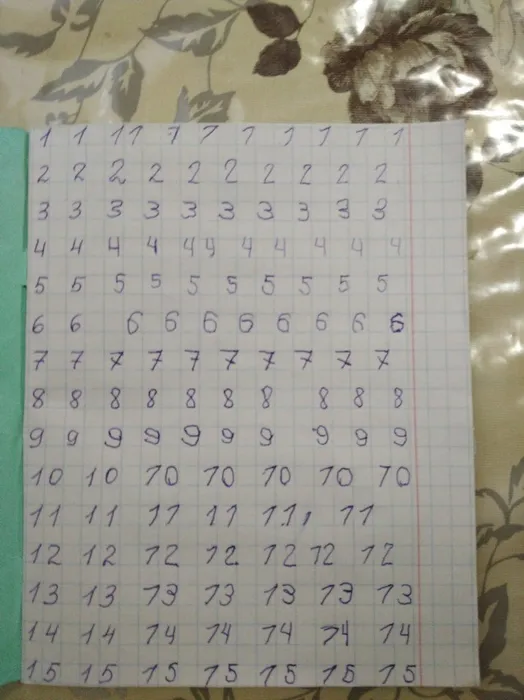 1 1 1 1 1 1 1 1 1 1 1
2 2 2 2 2 2 2 2 2 2
3 3 3 3 3 3 3 3 3 3
4 4 4 4 4 4 4 4 4 4 4
5 5 5 5 5 5 5 5 5 5
6 6 6 6 6 6 6 6 6 6
7 7 7 7 7 7 7 7 7 7
8 8 8 8 8 8 8 8 8 8
9 9 9 9 9 9 9 9 9 9
10 10 10 10 10 10 10
11 11 11 11 11, 11
12 12 12 12 12 12 12
13 13 13 13 13 13 13
14 14 14 14 14 14 14
15 15 15 15 15 15 15